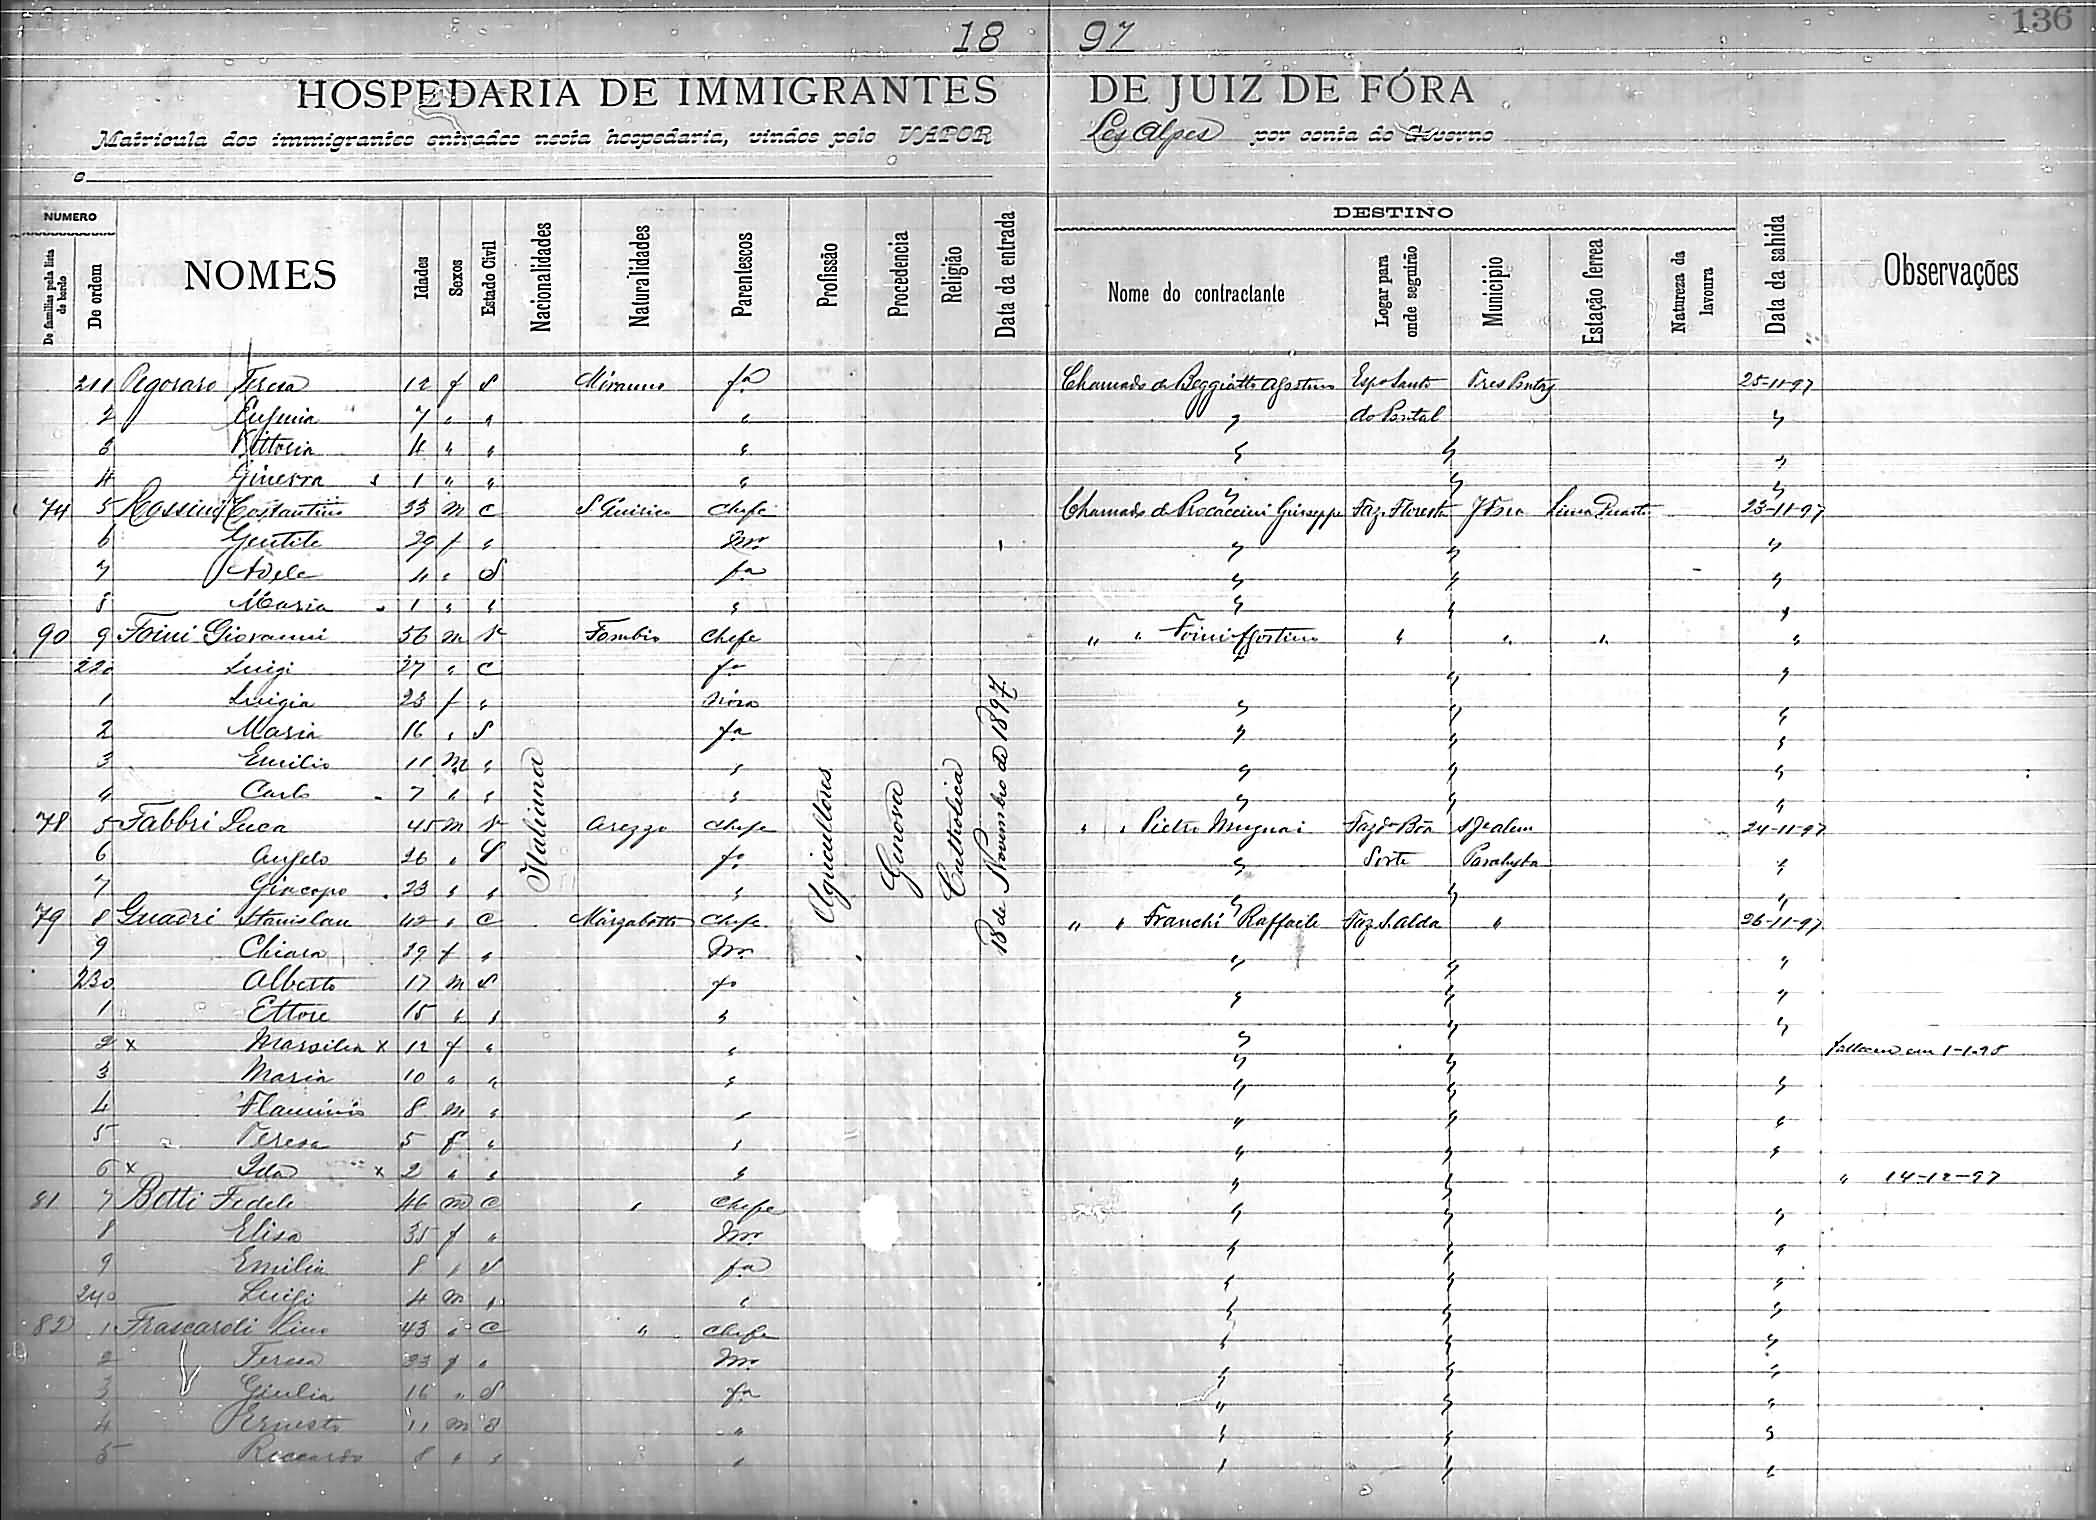 136
18 97
HOSPEDARIA DE IMMIGRANTES DE JUIZ DE FÓRA
Matricula dos immigrantes entrados nesta hospedaria, vindos pelo VAPOR Les Alpes por conta do Governo
o
NUMERO DESTINO
De familias pela lista de bordo De ordem NOMES Idades Sexos Estado Civil Nacionalidades Naturalidades Parentescos Profissão Procedencia Religião Data da entrada Nome do contractante Logar para onde seguirão Municipio Estação ferrea Natureza da lavoura Data da sahida Observações
Italiana Agricultores Genova Catholica 18 de Novembro de 1897
211 Pegoraro Teresa 12 f S Mirano fa Chamado de Beggiatto Agostino Espo Santo Tres Pontas 25-11-97
2 Eufemia 7 " " " " do Pontal "
3 Vittoria 4 " " " " " "
4 Ginevra 1 " " " " " "
74 5 Rossini Costantino 33 m C S Quirico Chefe Chamado de Procaccini Giuseppe Faz. Floresta J Fora Lima Duarte 23-11-97
6 Gentile 29 f " Mer " " "
7 Adele 4 " S fa " " "
8 Maria 1 " " " " " "
90 9 Foini Giovanni 56 m V Tombio Chefe " " Foini Agostino " " " "
220 Luigi 27 " C fo " " "
1 Luigia 23 f " Nora " " "
2 Maria 16 " S fa " " "
3 Emilio 11 m " " " " "
4 Carlo 7 " " " " " "
78 5 Fabbri Luca 45 m V Arezzo Chefe " " Pietro Mugnai Faz da Bôa S J alem 24-11-97
6 Angelo 26 " S fo " Sorte Parahyba "
7 Giacopo 23 " " " " " "
79 8 Guadri Stanislau 42 " C Marzabotto Chefe " " Franchi Raffaele Faz. S. Alda " 26-11-97
9 Chiara 39 f " Mer " " "
230 Alberto 17 m S fo " " "
1 Ettore 15 " " " " " "
2 x Marsilia x 12 f " " " " falleceu em 1-1-98
3 Maria 10 " " " " " "
4 Flaminio 8 m " " " " "
5 Teresa 5 f " " " " "
6 x Ida x 2 " " " " " " 14-12-97
81 7 Betti Fedele 46 m C " Chefe " " "
8 Elisa 35 f " Mer " " "
9 Emilia 8 " S fa " " "
240 Luigi 4 m " " " " "
82 1 Frascaroli Lino 43 " C " Chefe " " "
2 Teresa 33 f " Mer " " "
3 Giulia 16 " S fa " " "
4 Ernesto 11 m S " " " "
5 Riccardo 8 " " " " " "